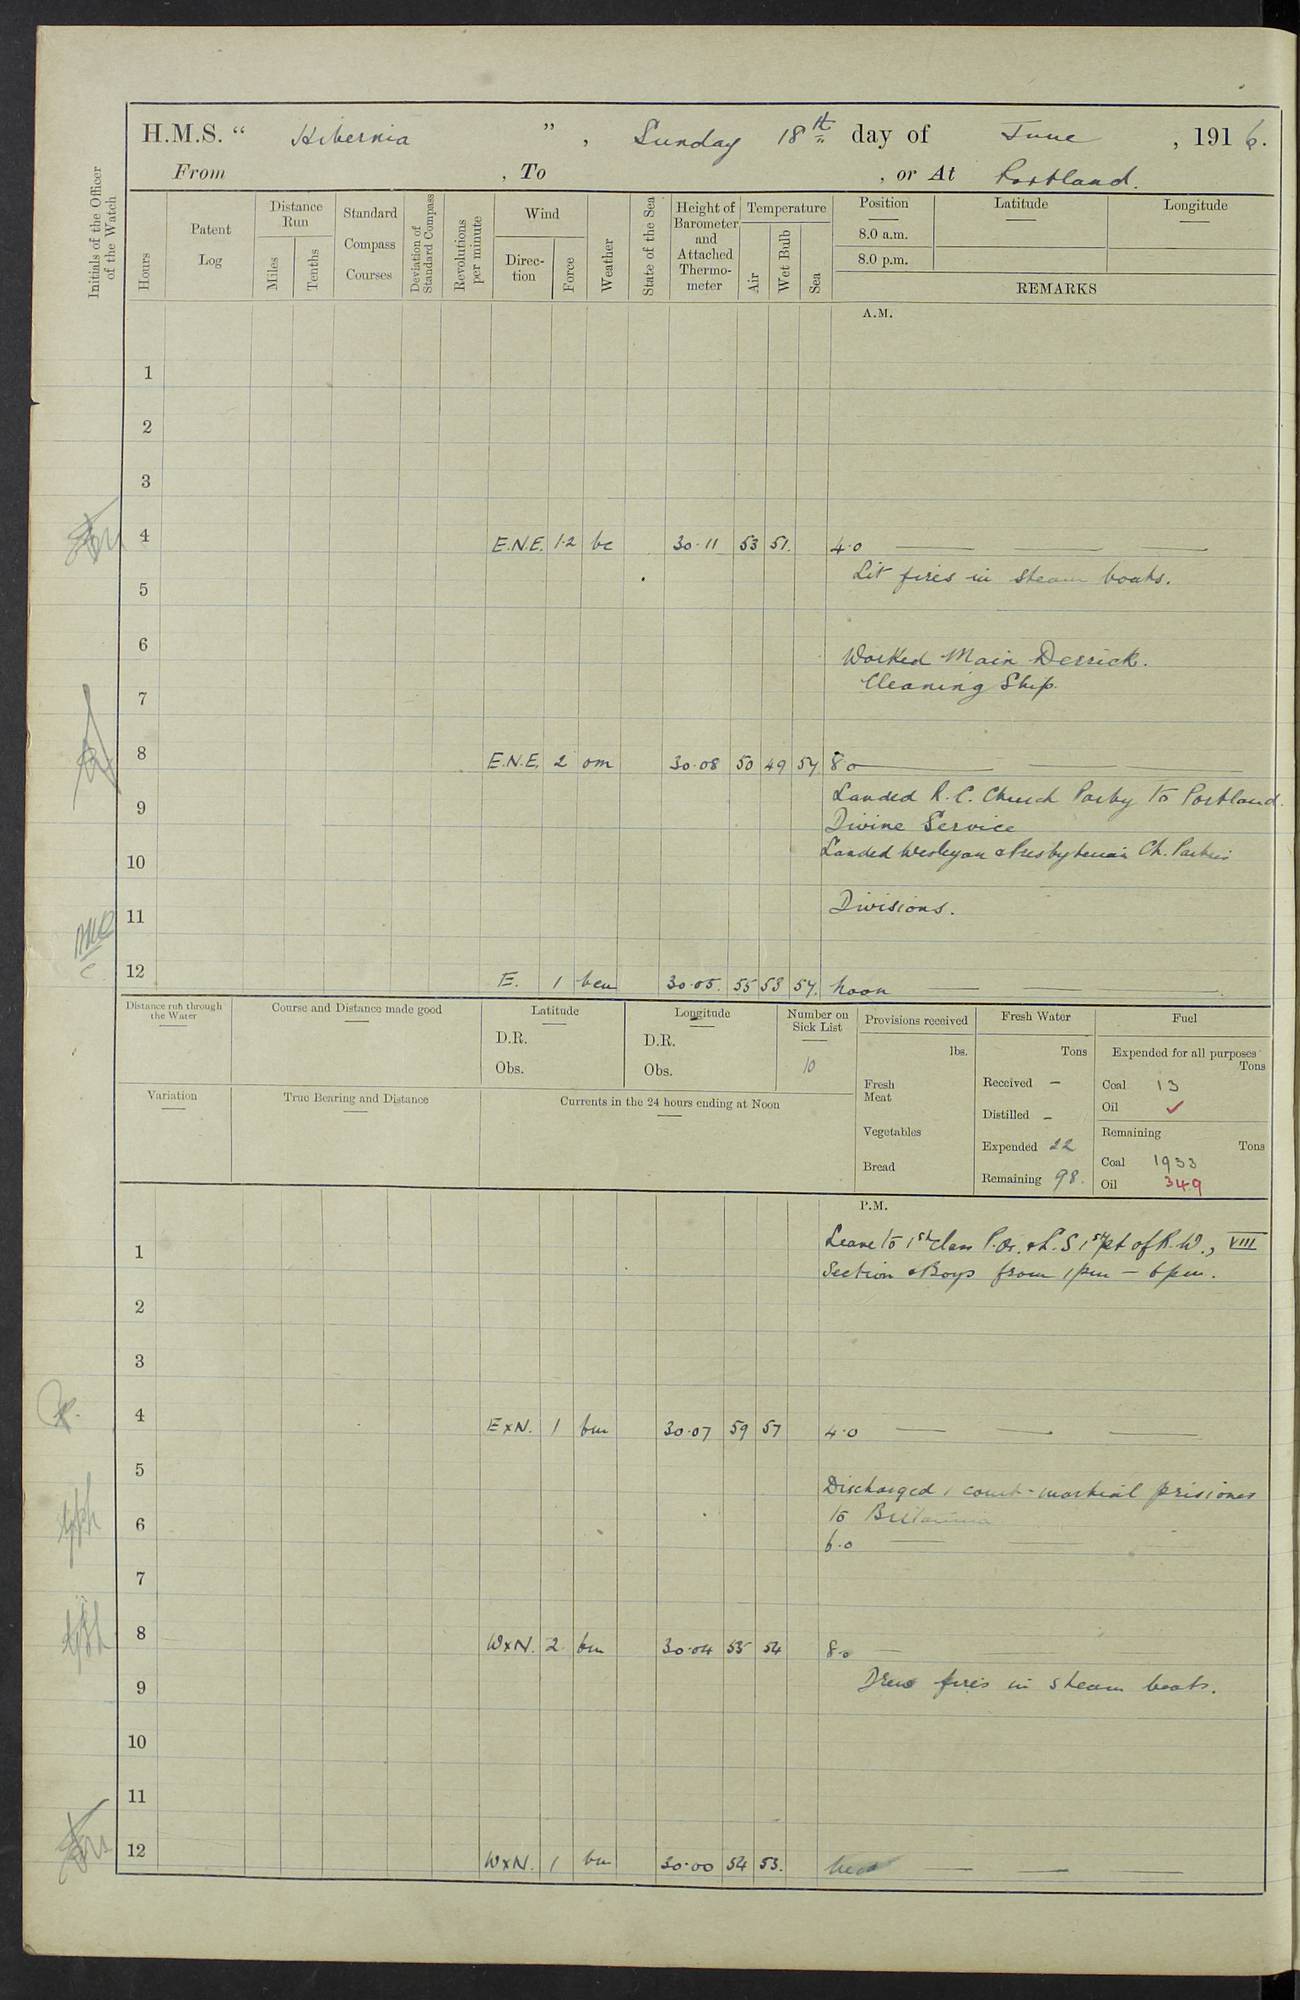 H.M.S. “ Hibernia ” , Sunday 18th day of June , 1916.
From , To , or At Portland.
Initials of the Officer of the Watch
Hours
Patent Log
Distance Run
Miles
Tenths
Standard Compass Courses
Deviation of Standard Compass
Revolutions per minute
Wind
Direction
Force
Weather
State of the Sea
Height of Barometer and Attached Thermometer
Temperature
Air
Wet Bulb
Sea
Position
Latitude
Longitude
8.0 a.m.
8.0 p.m.
REMARKS
A.M.
1
2
3
4 E.N.E. 1.2 bc 30.11 53 51. 4.0
Lit fires in steam boats.
5
6
Worked Main Derrick.
Cleaning Ship.
7
8 E.N.E. 2 om 30.08 50 49 54 8.0
Landed R.C. Church Party to Portland.
9
Divine Service
Landed Wesleyan & Presbyterian Ch. Parties
10
Divisions.
11
12 E. 1 bcm 30.05. 55 53 54. Noon
Distance run through the Water
Course and Distance made good
Latitude
D.R.
Obs.
Longitude
D.R.
Obs.
Number on Sick List
10
Provisions received
lbs.
Fresh Meat
Vegetables
Bread
Fresh Water
Tons
Received -
Distilled -
Expended 22
Remaining 98.
Fuel
Expended for all purposes
Tons
Coal 13
Oil ✓
Remaining
Tons
Coal 1933
Oil 349
Variation
True Bearing and Distance
Currents in the 24 hours ending at Noon
P.M.
Leave to 1st Class P.Os. & L.S 1st pt of R.W., VIII
1
Section & Boys from 1pm - 6pm.
2
3
4 ExN. 1 bm 30.07 59 57 4.0
5
Discharged 1 court-martial prisioner
to Britannia
6
6.0
7
8 WxN. 2 bm 30.04 55 54 8.0
Drew fires in steam boats.
9
10
11
12 WxN. 1 bm 30.00 54 53.